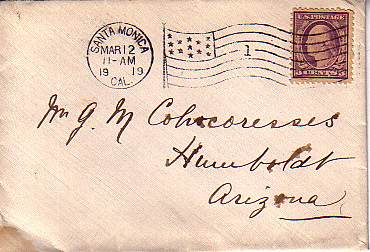 SANTA MONICA
MAR 12
11-AM
19 19
CAL.
1
U.S. POSTAGE
3 CENTS 3
Mr G. M
Humboldt
Arizona